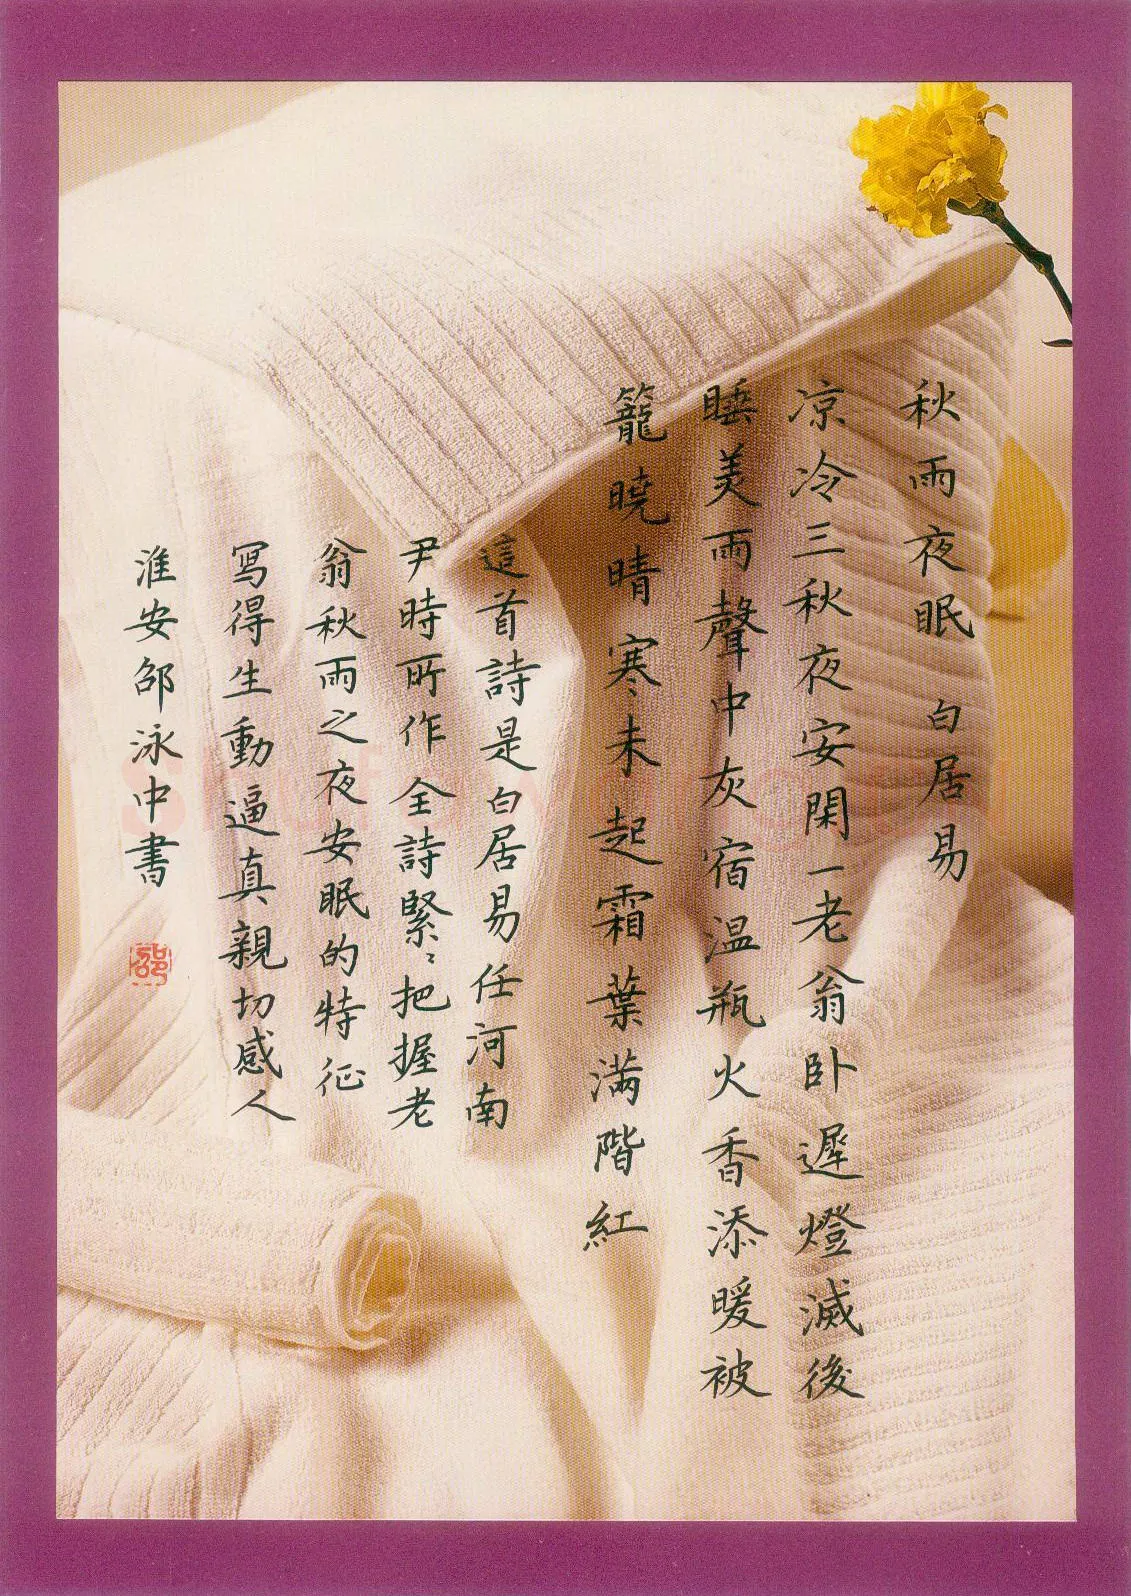 秋雨夜眠 白居易
凉冷三秋夜安閑一老翁卧遲燈滅後
睡美雨聲中灰宿温瓶火香添暖被
籠曉晴寒未起霜葉满階紅
這首詩是白居易任河南
尹時所作全詩緊〻把握老
翁秋雨之夜安眠的特征
寫得生動逼真親切感人
淮安邵泳中書
邵